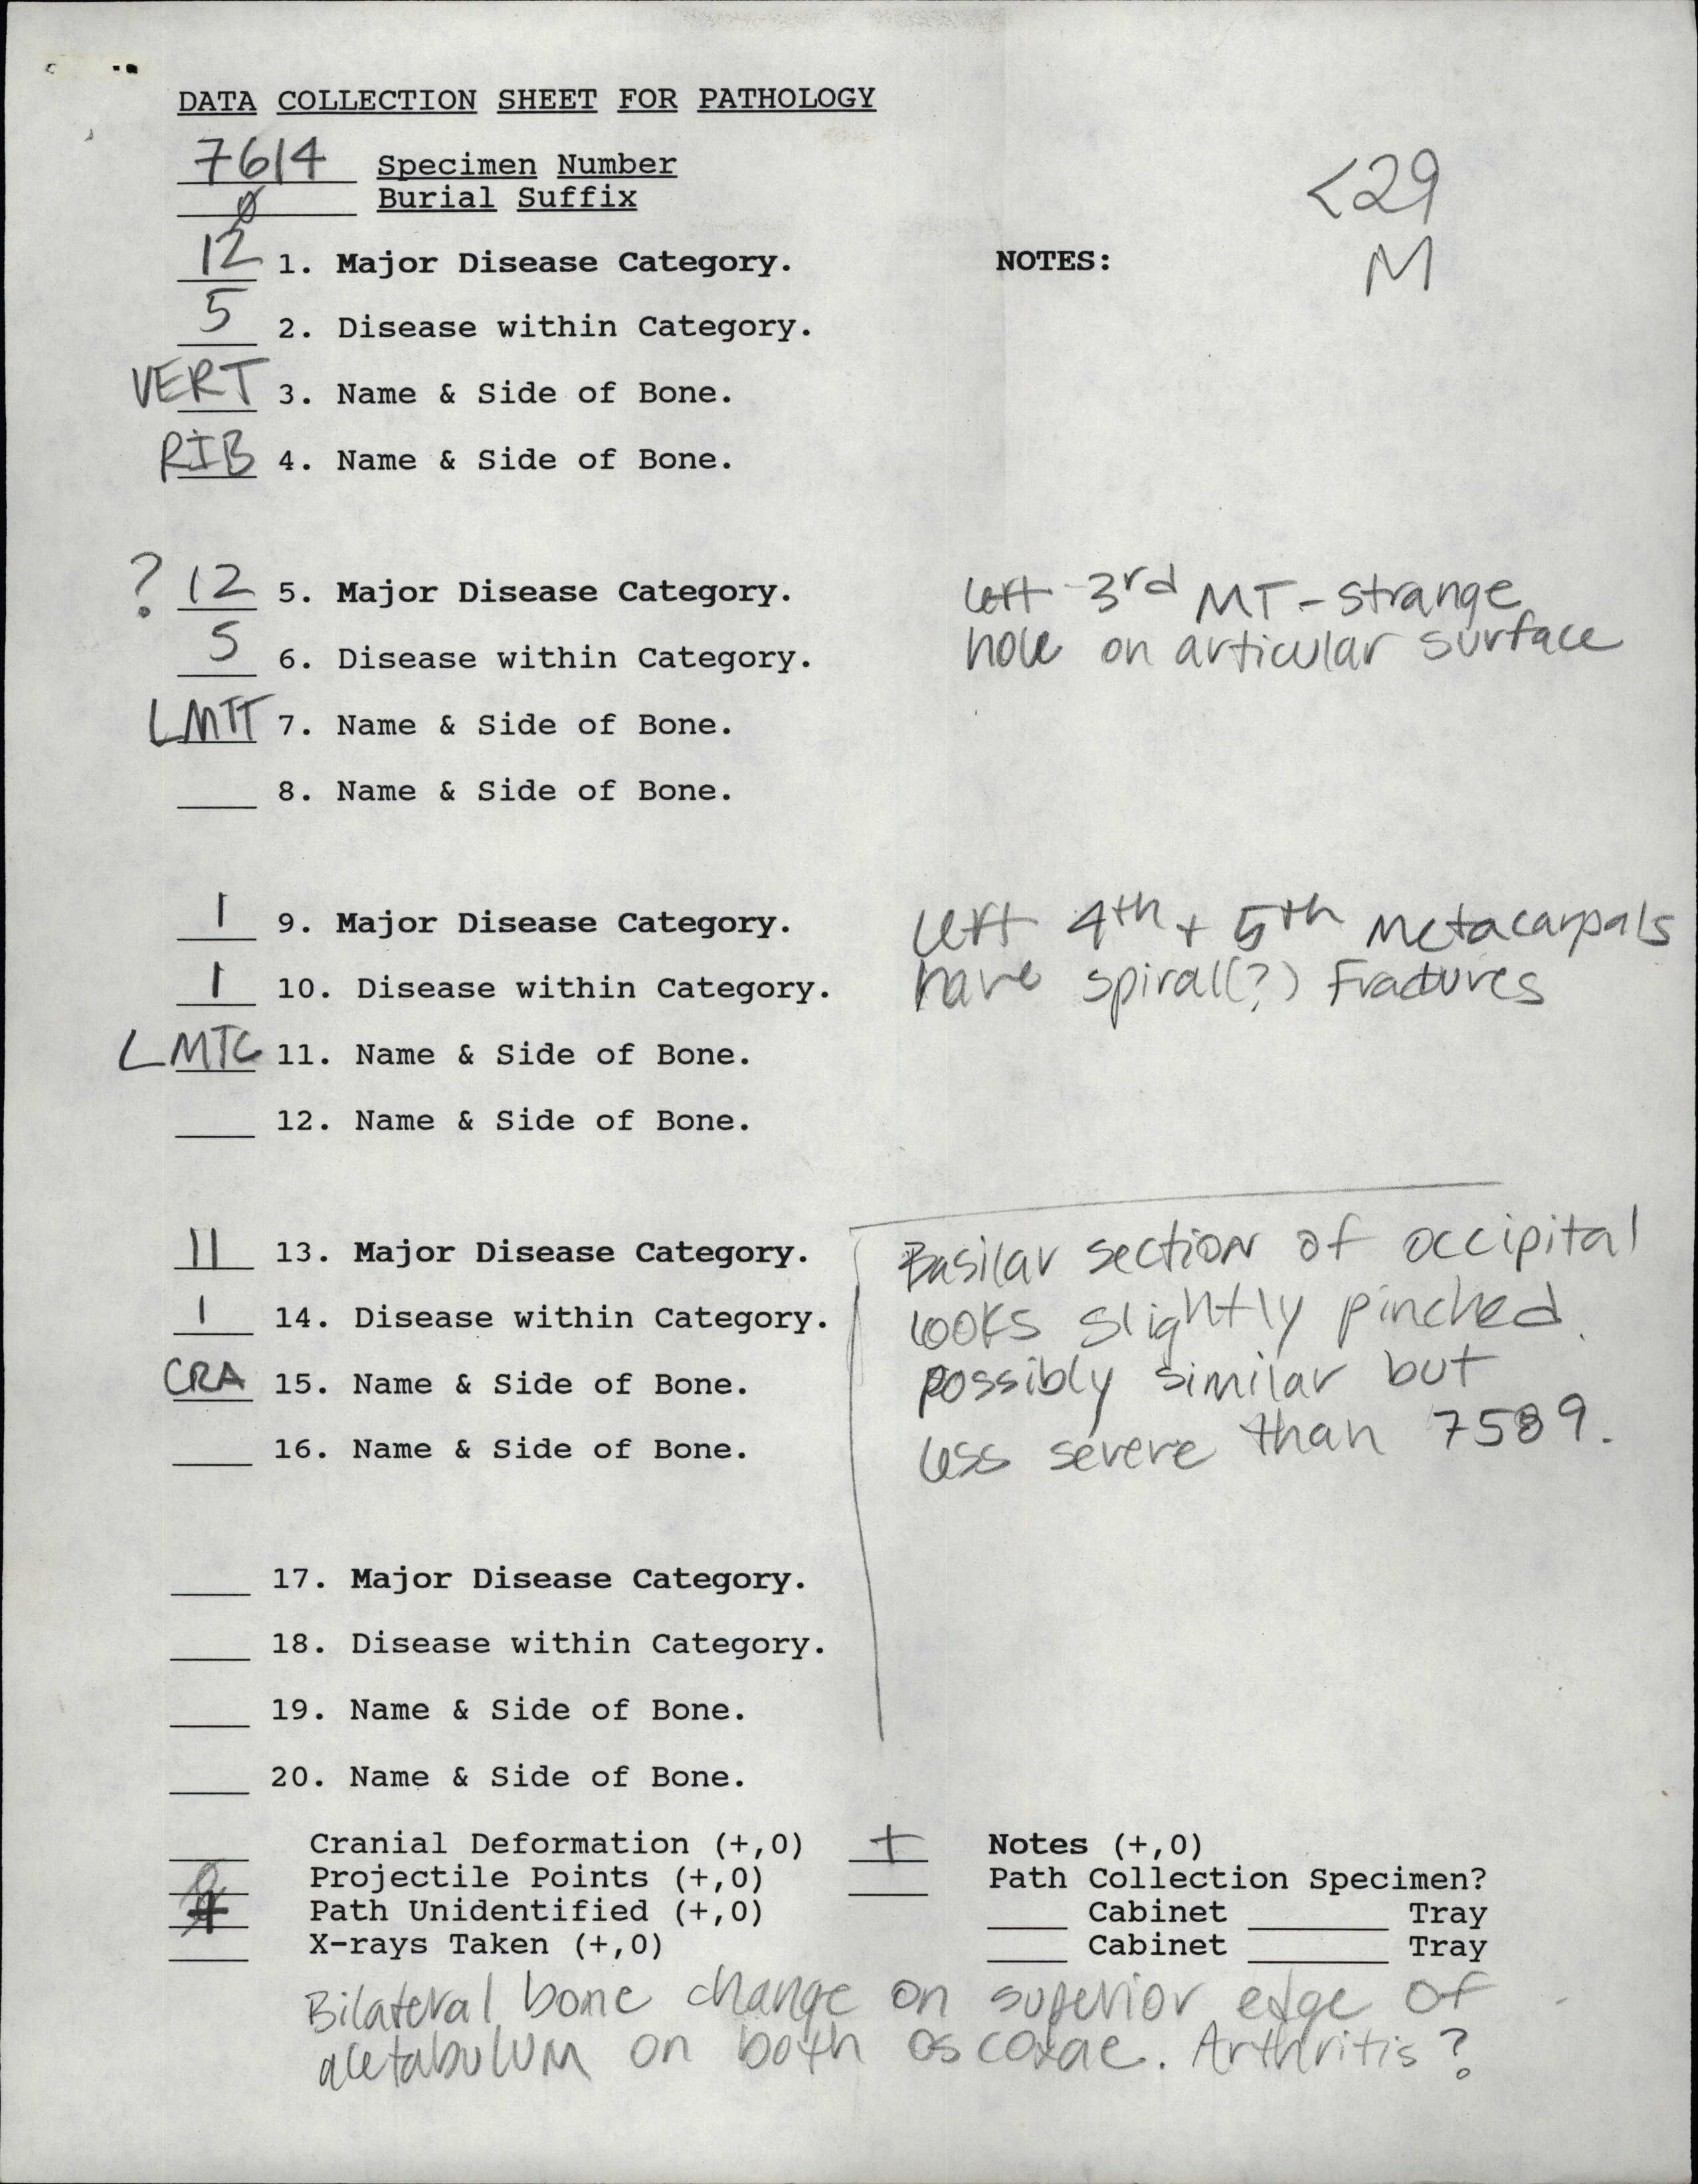 DATA COLLECTION SHEET FOR PATHOLOGY
7614 Specimen Number
0 Burial Suffix
<29
M
12 1. Major Disease Category.
NOTES:
5 2. Disease within Category.
VERT 3. Name & Side of Bone.
RIB 4. Name & Side of Bone.
? 12 5. Major Disease Category.
left 3rd MT - strange
hole on articular surface
5 6. Disease within Category.
LMTT 7. Name & Side of Bone.
8. Name & Side of Bone.
1 9. Major Disease Category.
left 4th + 5th Metacarpals
have spiral(?) Fractures
1 10. Disease within Category.
LMTC 11. Name & Side of Bone.
12. Name & Side of Bone.
11 13. Major Disease Category.
Basilar section of occipital
looks slightly pinched.
possibly similar but
less severe than 7589.
1 14. Disease within Category.
CRA 15. Name & Side of Bone.
16. Name & Side of Bone.
17. Major Disease Category.
18. Disease within Category.
19. Name & Side of Bone.
20. Name & Side of Bone.
Cranial Deformation (+,0) + Notes (+,0)
Projectile Points (+,0) Path Collection Specimen?
+ Path Unidentified (+,0) Cabinet Tray
X-rays Taken (+,0) Cabinet Tray
Bilateral bone change on superior edge of
acetabulum on both os coxae. Arthritis?